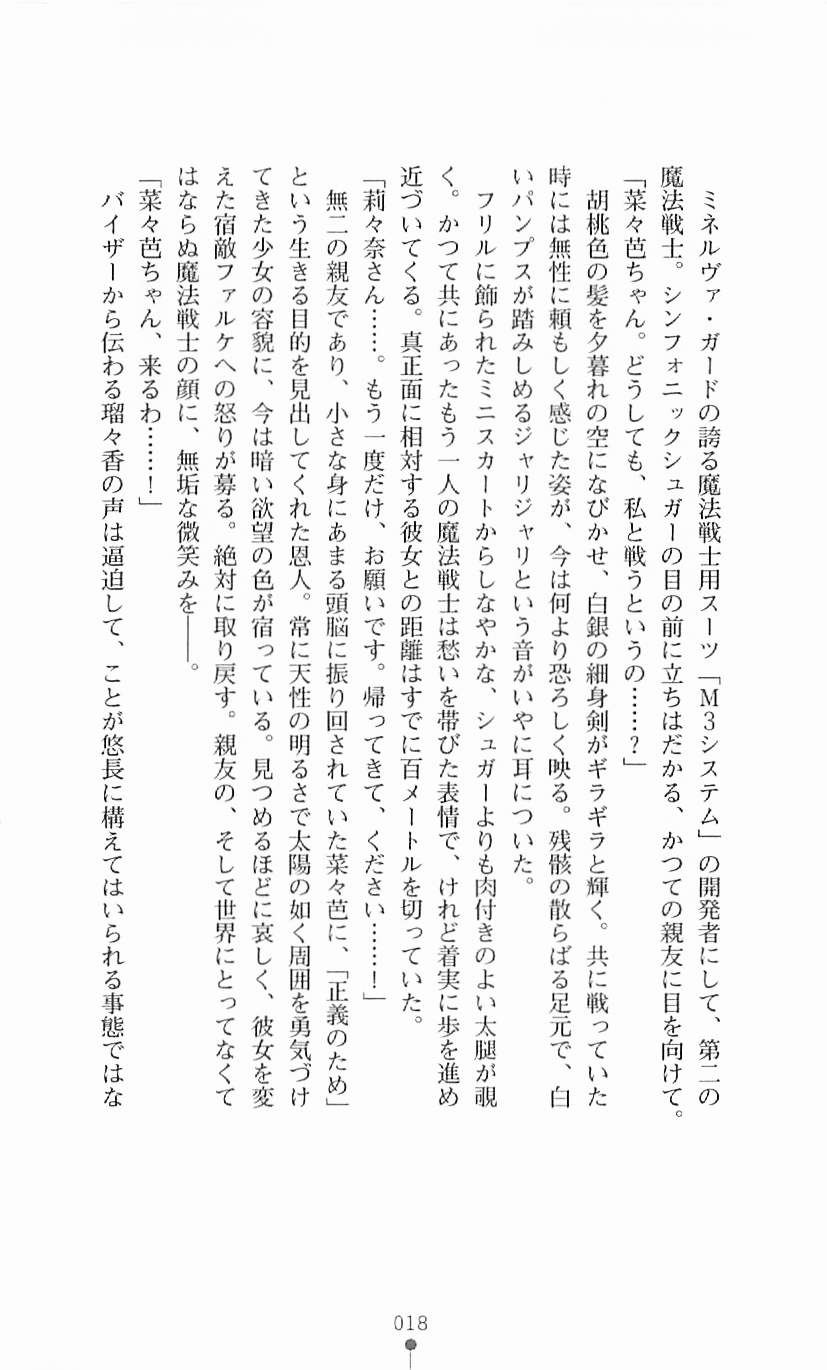 ミネルヴァ・ガードの誇る魔法戦士用スーツ「Ｍ３システム」の開発者にして、第二の
魔法戦士。シンフォニックシュガーの目の前に立ちはだかる、かつての親友に目を向けて。
「菜々芭ちゃん。どうしても、私と戦うというの……？」
　胡桃色の髪を夕暮れの空になびかせ、白銀の細身剣がギラギラと輝く。共に戦っていた
時には無性に頼もしく感じた姿が、今は何より恐ろしく映る。残骸の散らばる足元で、白
いパンプスが踏みしめるジャリジャリという音がいやに耳についた。
　フリルに飾られたミニスカートからしなやかな、シュガーよりも肉付きのよい太腿が覗
く。かつて共にあったもう一人の魔法戦士は愁いを帯びた表情で、けれど着実に歩を進め
近づいてくる。真正面に相対する彼女との距離はすでに百メートルを切っていた。
「莉々奈さん……。もう一度だけ、お願いです。帰ってきて、ください……！」
　無二の親友であり、小さな身にあまる頭脳に振り回されていた菜々芭に、「正義のため」
という生きる目的を見出してくれた恩人。常に天性の明るさで太陽の如く周囲を勇気づけ
てきた少女の容貌に、今は暗い欲望の色が宿っている。見つめるほどに哀しく、彼女を変
えた宿敵ファルケへの怒りが募る。絶対に取り戻す。親友の、そして世界にとってなくて
はならぬ魔法戦士の顔に、無垢な微笑みを――。
「菜々芭ちゃん、来るわ……！」
　バイザーから伝わる瑠々香の声は逼迫して、ことが悠長に構えてはいられる事態ではな
018